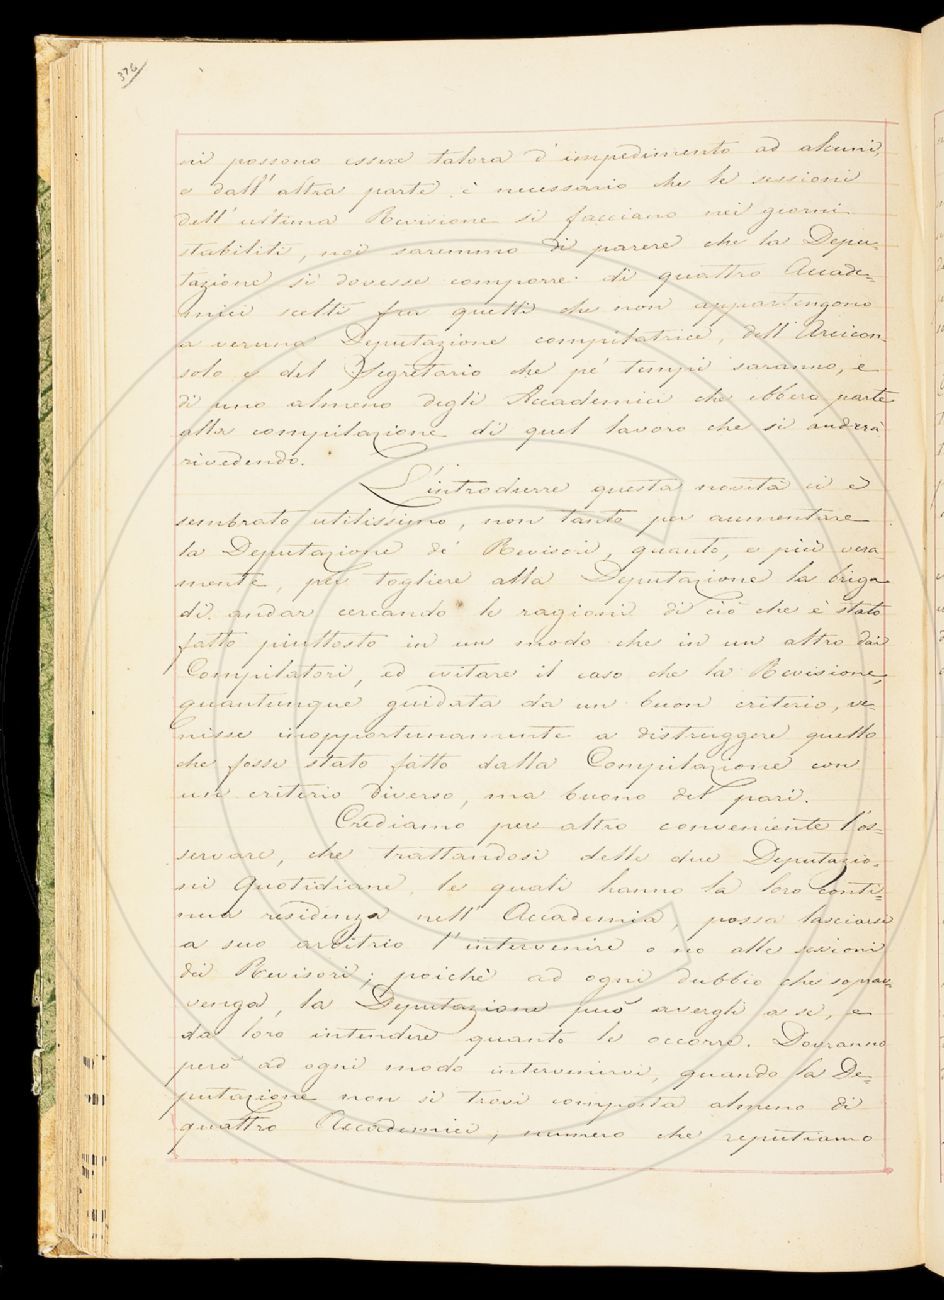 376
ni possono essere talora d'impedimento ad alcuni,
e dall'altra parte è necessario che le sessioni
dell'ultima Revisione si facciano nei giorni
stabiliti, noi saremmo di parere che la Depu-
tazione si dovesse comporre di quattro Accade-
mici scelti fra quelli che non appartengono
a veruna Deputazione compilatrice, dell'Arcicon-
solo e del Segretario che pe' tempi saranno, e
di uno almeno degli Accademici che ebbero parte
alla compilazione di quel lavoro che si anderà
rivedendo.
L'introdurre questa novità ci è
sembrato utilissimo, non tanto per aumentare
la Deputazione de' Revisori, quanto, e più vera
mente, per togliere alla Deputazione la briga
di andar cercando le ragioni di ciò che è stato
fatto piuttosto in un modo che in un altro dai
Compilatori, ed evitare il caso che la Revisione,
quantunque guidata da un buon criterio, ve-
nisse inopportunamente a distruggere quello
che fosse stato fatto dalla Compilazione con
un criterio diverso, ma buono del pari.
Crediamo per altro conveniente l'os-
servare, che trattandosi delle due Deputazio-
ni Quotidiane, le quali hanno la loro conti-
nua residenza nell'Accademia, possa lasciarsi
a suo arbitrio l'intervenire o no alle sessioni
dei Revisori; poichè ad ogni dubbio che soprav-
venga, la Deputazione può avergli a sè, e
da loro intendere quanto le occorre. Dovranno
però ad ogni modo intervenirvi, quando la De-
putazione non si trovi composta almeno di
quattro Accademici, numero che reputiamo